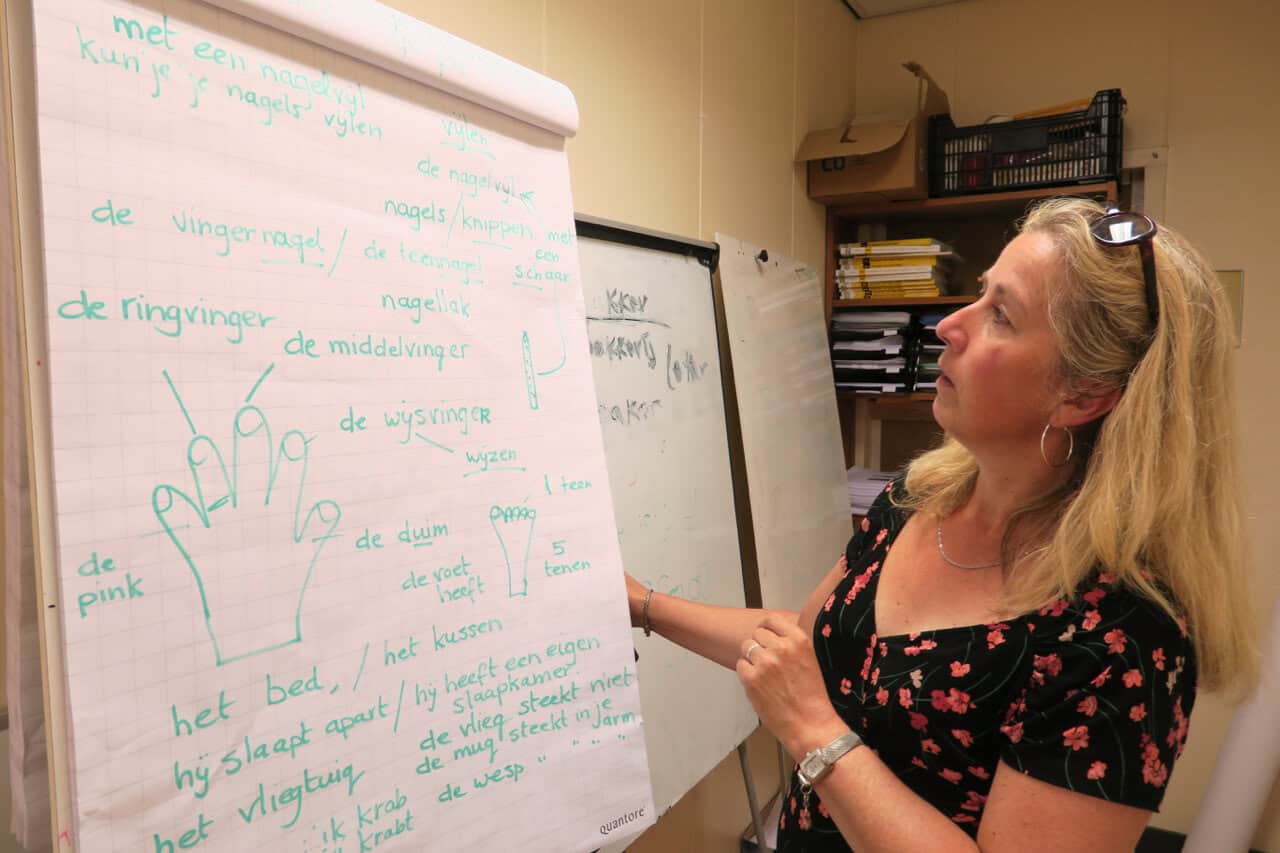 met een nagelvijl
kun je je nagels vijlen
vijlen
de nagelvijl
nagels / knippen met
een
schaar
de vingernagel / de teennagel
nagellak
de ringvinger
de middelvinger
de wijsvinger
wijzen
1 teen
de duim
de voet
heeft
5
tenen
de
pink
het bed, / het kussen
hij slaapt apart / hij heeft een eigen
slaapkamer
het vliegtuig
de vlieg steekt niet
de mug steekt in je
arm
de wesp " " " "
ik krab
krabt
quantore
kker